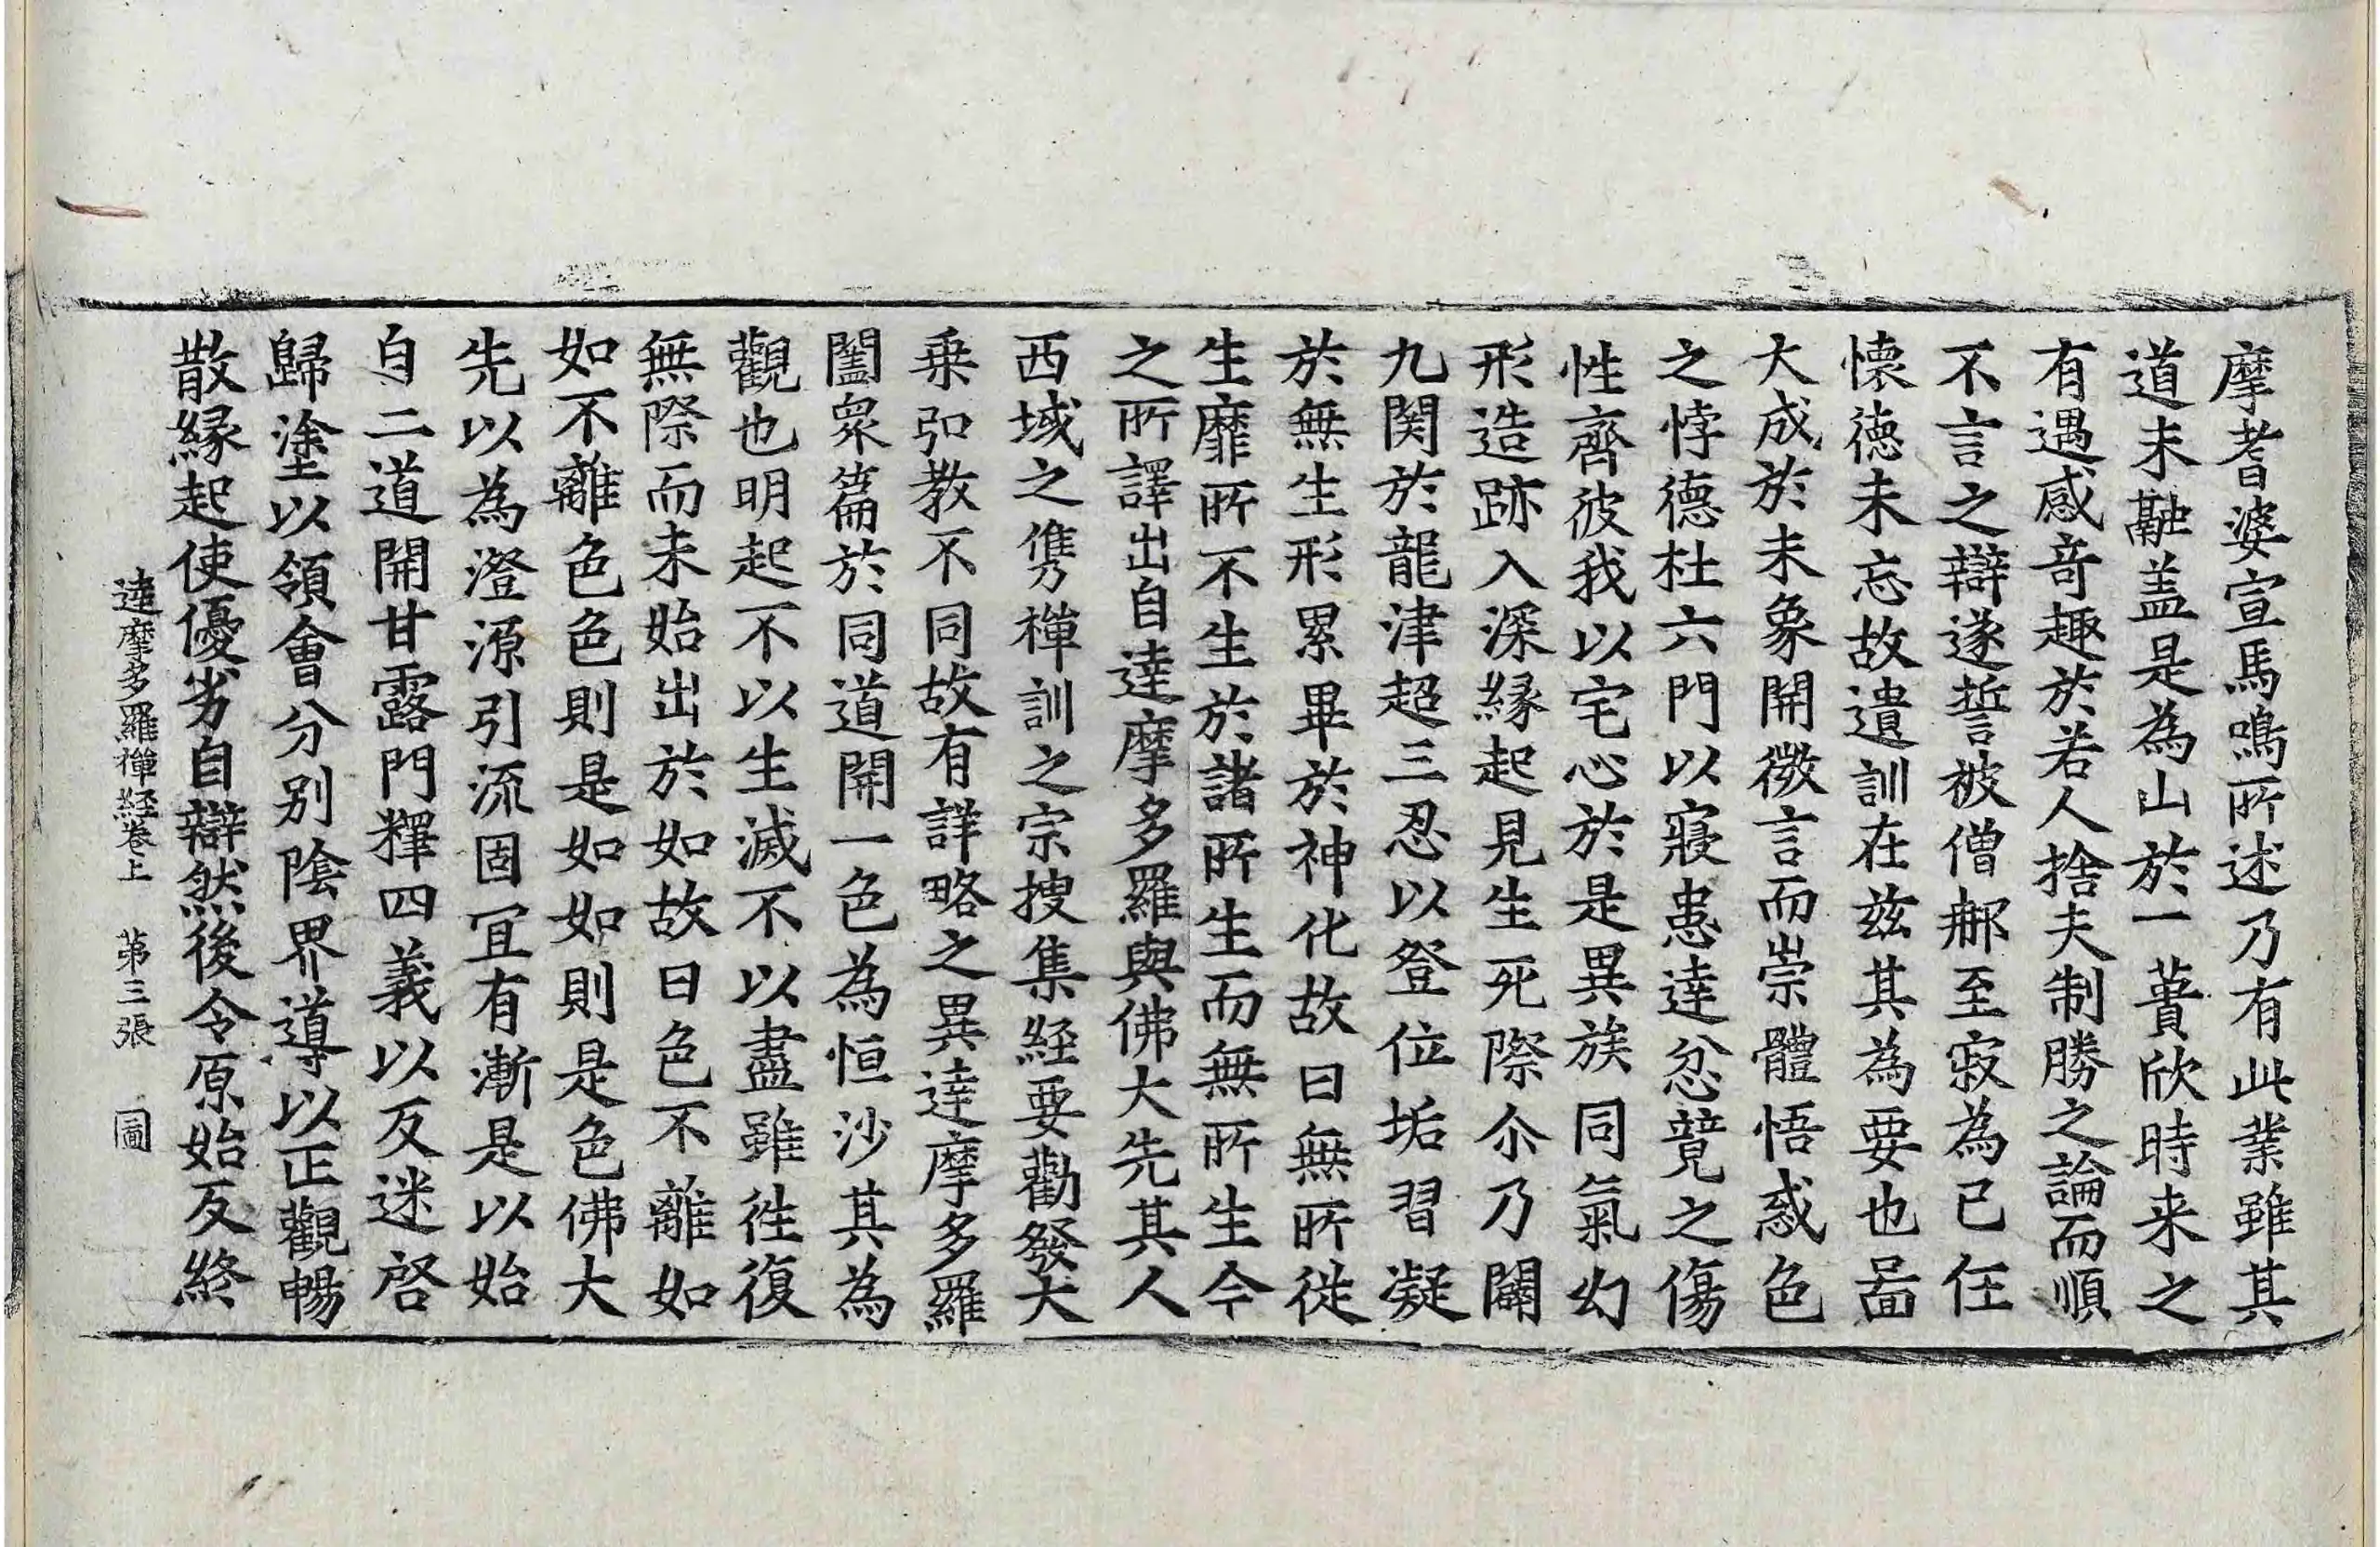 摩耆婆宣馬鳴所述乃有此業雖其
道未融盖是為山於一蕢欣時来之
有遇感竒趣於若人捨夫制勝之論而順
不言之辯遂誓被僧郍至寂為已任
懐徳未忘故遺訓在兹其為要也啚
大成於未象開微言而崇體悟惑色
之悖德杜六門以寢患達忿競之傷
性齊彼我以宅心於是異族同氣幻
形造跡入深縁起見生死際尒乃闢
九関於龍津超三忍以登位垢習凝
於無生形累畢於神化故曰無所從
生靡所不生於諸所生而無所生今
之所譯出自達摩多羅與佛大先其人
西域之儁禪訓之宗搜集経要勸發大
乗弘教不同故有詳略之異達摩多羅
闔衆篇於同道開一色為恒沙其為
觀也明起不以生滅不以盡雖徃復
無際而未始出於如故曰色不離如
如不離色色則是如如則是色佛大
先以為澄源引流固冝有漸是以始
自二道開甘露門釋四義以反迷啓
歸塗以領會分别陰界導以正觀暢
散縁起使優劣自辯然後令原始反終
達摩多羅禪経卷上　第三張　啚